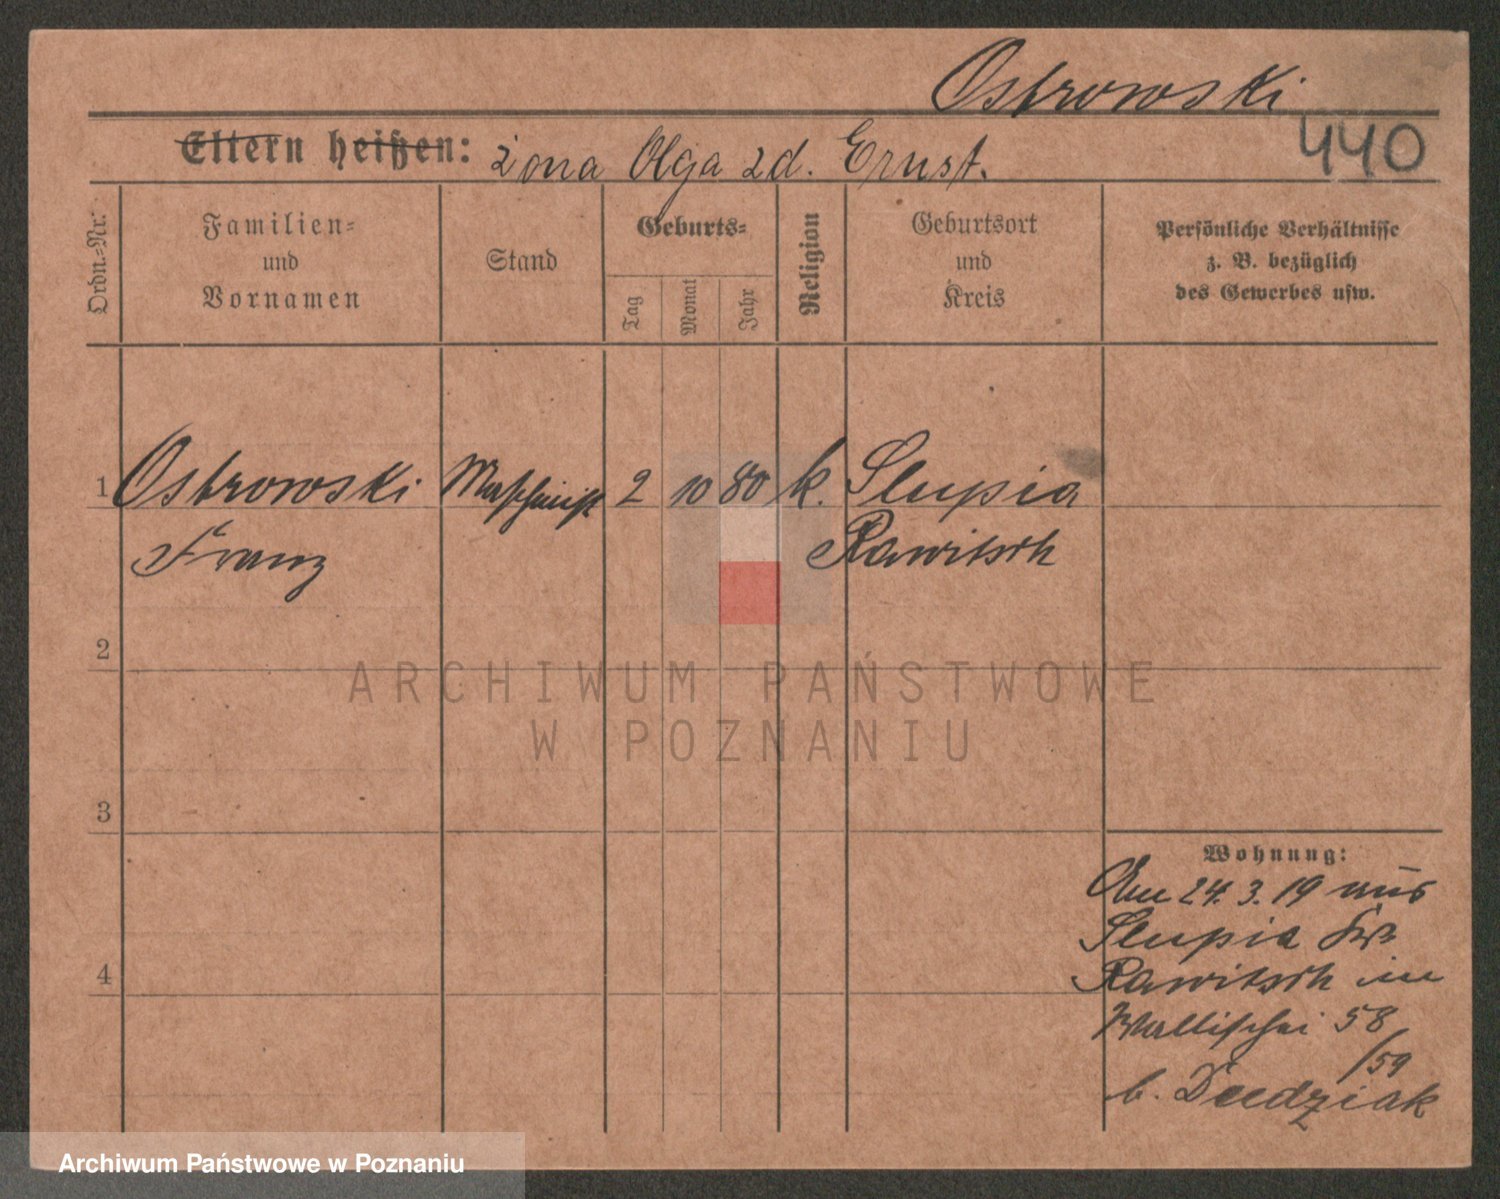 Ostrowski
440
Eltern heißen: żona Olga zd. Ernst.
Ordn.-Nr.
Familien-
und
Vornamen
Stand
Geburts-
Tag
Monat
Jahr
Religion
Geburtsort
und
Kreis
Persönliche Verhältnisse
z. B. bezüglich
des Gewerbes usw.
1 Ostrowski Maschinist 2 10 80 k. Slupia
Franz Rawitsch
2
ARCHIWUM PAŃSTWOWE
W POZNANIU
3
Wohnung:
Am 24.3.19 aus
Slupia Krs
Rawitsch in
4
Wallischei 58
/59
b. Dudziak
Archiwum Państwowe w Poznaniu